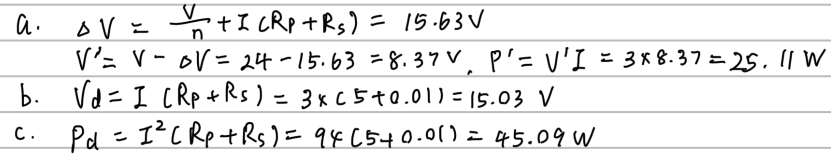 a. ΔV = V/n + I (Rp+Rs) = 15.63V
V'= V - ΔV = 24-15.63 = 8.37V, P' = V'I = 3×8.37 = 25.11 W
b. Vd = I (Rp+Rs) = 3×(5+0.01) = 15.03 V
c. Pd = I²(Rp+Rs) = 9×(5+0.01) = 45.09 W